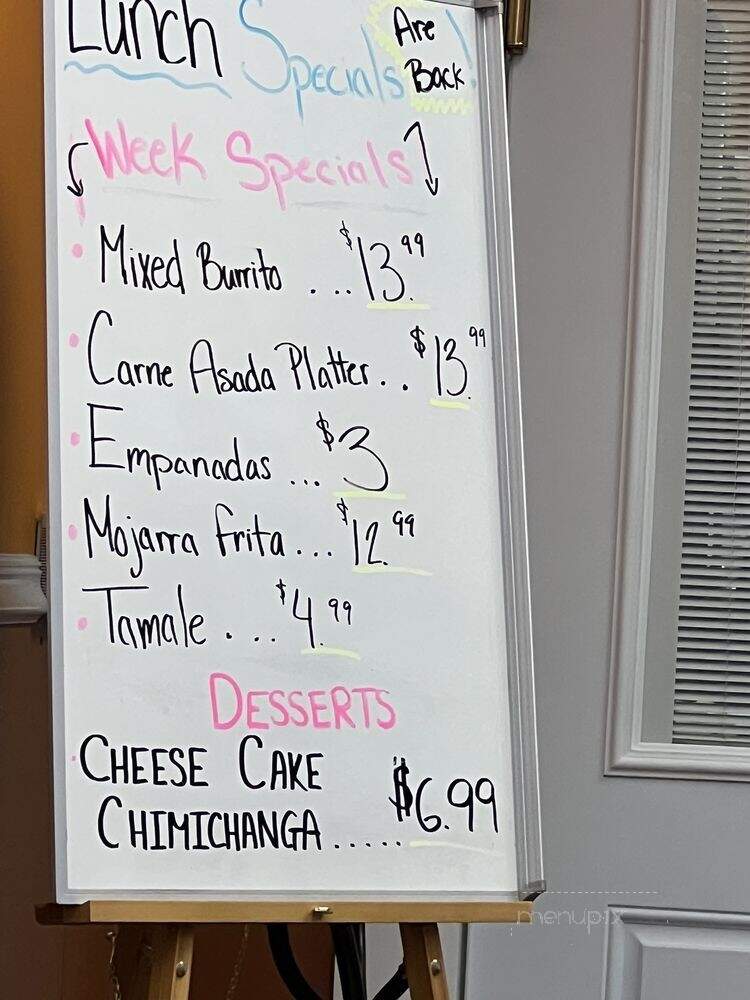 Lunch Specials Are Back!
Week Specials
• Mixed Burrito ... $13.99
• Carne Asada Platter.. $13.99
• Empanadas ... $3
• Mojarra frita... $12.99
• Tamale .... $4.99
DESSERTS
• CHEESE CAKE
CHIMICHANGA..... $6.99
menupix